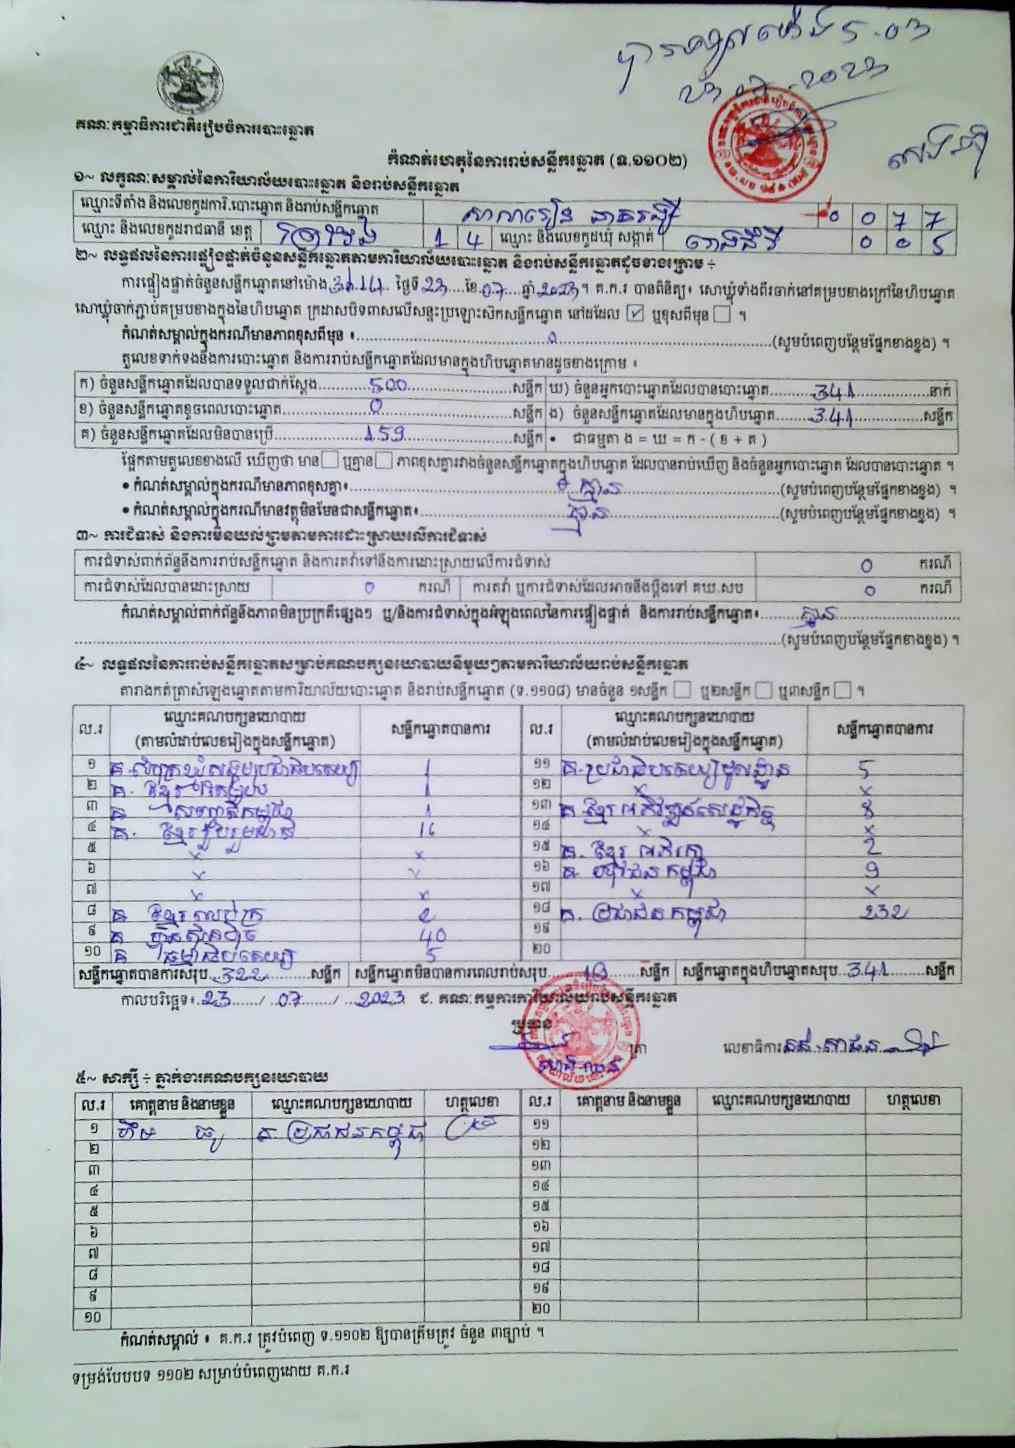 ម៉ោង 5.03
២៣.០៧.2023
គណៈកម្មាធិការជាតិរៀបចំការបោះឆ្នោត
កំណត់ហេតុនៃការរាប់សន្លឹកឆ្នោត (ទ.១១០២)
១~ លក្ខណៈសម្គាល់នៃការិយាល័យបោះឆ្នោត និងរាប់សន្លឹកឆ្នោត
ឈ្មោះទីតាំង និងលេខកូដការិ.បោះឆ្នោត និងរាប់សន្លឹកឆ្នោត សាលារៀន 0 0 7 7
ឈ្មោះ និងលេខកូដរាជធានី ខេត្ត ព្រៃវែង 1 4 ឈ្មោះ និងលេខកូដឃុំ សង្កាត់ 0 0 5
២~ លទ្ធផលនៃការផ្ទៀងផ្ទាត់ចំនួនសន្លឹកឆ្នោតតាមការិយាល័យបោះឆ្នោត និងរាប់សន្លឹកឆ្នោតដូចខាងក្រោម ÷
ការផ្ទៀងផ្ទាត់ចំនួនសន្លឹកឆ្នោតនៅម៉ោង ថ្ងៃទី 23 ខែ 07 ឆ្នាំ 2023។ គ.ក.រ បានពិនិត្យ៖ សោឃ្លុំទាំងពីរចាក់នៅគម្របខាងក្រៅនៃហិបឆ្នោត
សោឃ្លុំចាក់ភ្ជាប់គម្របខាងក្នុងនៃហិបឆ្នោត ក្រដាសបិទពាសលើសន្ទះប្រឡោះសិកសន្លឹកឆ្នោត នៅដដែល ☑ ឬខុសពីមុន ☐ ។
កំណត់សម្គាល់ក្នុងករណីមានភាពខុសពីមុន ៖ 0 (សូមបំពេញបន្ថែមផ្នែកខាងខ្នង) ។
តួលេខទាក់ទងនឹងការបោះឆ្នោត និងការរាប់សន្លឹកឆ្នោតដែលមានក្នុងហិបឆ្នោតមានដូចខាងក្រោម ៖
ក) ចំនួនសន្លឹកឆ្នោតដែលបានទទួលជាក់ស្តែង 500 សន្លឹក ឃ) ចំនួនអ្នកបោះឆ្នោតដែលបានបោះឆ្នោត 341 នាក់
ខ) ចំនួនសន្លឹកឆ្នោតខូចពេលបោះឆ្នោត 0 សន្លឹក ង) ចំនួនសន្លឹកឆ្នោតដែលមានក្នុងហិបឆ្នោត 341 សន្លឹក
គ) ចំនួនសន្លឹកឆ្នោតដែលមិនបានប្រើ 159 សន្លឹក • ជាធម្មតា ង = ឃ = ក - ( ខ + គ )
ផ្អែកតាមតួលេខខាងលើ ឃើញថា មាន ☐ ឬគ្មាន ☐ ភាពខុសគ្នារវាងចំនួនសន្លឹកឆ្នោតក្នុងហិបឆ្នោត ដែលបានរាប់ឃើញ និងចំនួនអ្នកបោះឆ្នោត ដែលបានបោះឆ្នោត ។
• កំណត់សម្គាល់ក្នុងករណីមានភាពខុសគ្នា៖ គ្មាន (សូមបំពេញបន្ថែមផ្នែកខាងខ្នង) ។
• កំណត់សម្គាល់ក្នុងករណីមានវត្ថុមិនមែនជាសន្លឹកឆ្នោត៖ គ្មាន (សូមបំពេញបន្ថែមផ្នែកខាងខ្នង) ។
៣~ ការជំទាស់ និងការមិនយល់ព្រមតាមការដោះស្រាយលើការជំទាស់
ការជំទាស់ពាក់ព័ន្ធនឹងការរាប់សន្លឹកឆ្នោត និងការតវ៉ាទៅនឹងការដោះស្រាយលើការជំទាស់ 0 ករណី
ការជំទាស់ដែលបានដោះស្រាយ 0 ករណី ការតវ៉ា ឬការជំទាស់ដែលអាចនឹងប្តឹងទៅ គឃ.សប 0 ករណី
កំណត់សម្គាល់ពាក់ព័ន្ធនឹងភាពមិនប្រក្រតីផ្សេងៗ ឬ/និងការជំទាស់ក្នុងអំឡុងពេលនៃការផ្ទៀងផ្ទាត់ និងការរាប់សន្លឹកឆ្នោត៖ គ្មាន
(សូមបំពេញបន្ថែមផ្នែកខាងខ្នង) ។
៤~ លទ្ធផលនៃការរាប់សន្លឹកឆ្នោតសម្រាប់គណបក្សនយោបាយនីមួយៗតាមការិយាល័យរាប់សន្លឹកឆ្នោត
តារាងកត់ត្រាសំឡេងឆ្នោតតាមការិយាល័យបោះឆ្នោត និងរាប់សន្លឹកឆ្នោត (ទ.១១០៨) មានចំនួន ១សន្លឹក ☐ ឬ២សន្លឹក ☐ ឬ៣សន្លឹក ☐ ។
ល.រ ឈ្មោះគណបក្សនយោបាយ (តាមលំដាប់លេខរៀងក្នុងសន្លឹកឆ្នោត) សន្លឹកឆ្នោតបានការ ល.រ ឈ្មោះគណបក្សនយោបាយ (តាមលំដាប់លេខរៀងក្នុងសន្លឹកឆ្នោត) សន្លឹកឆ្នោតបានការ
១ គ. សំបុកឃ្មុំសង្គមប្រជាធិបតេយ្យ 1 ១១ គ. ប្រជាធិបតេយ្យមូលដ្ឋាន 5
២ គ. ខ្មែរ 1 ១២ x
៣ គ. សញ្ជាតិកម្ពុជា 1 ១៣ គ. ខ្មែរអភិវឌ្ឍន៍សេដ្ឋកិច្ច 8
៤ គ. ខ្មែររួបរួមជាតិ 16 ១៤ x x
៥ x x ១៥ គ. ខ្មែរ អភិរក្ស 2
៦ x x ១៦ គ. យុវជនកម្ពុជា 9
៧ x x ១៧ x x
៨ គ ខ្មែរ ឈប់ក្រ 2 ១៨ គ. ប្រជាជនកម្ពុជា 232
៩ គ ហ្វ៊ុនស៊ិនប៉ិច 40 ១៩
១០ គ ធម្មាធិបតេយ្យ 5 ២០
សន្លឹកឆ្នោតបានការសរុប 322 សន្លឹក សន្លឹកឆ្នោតមិនបានការពេលរាប់សរុប 19 សន្លឹក សន្លឹកឆ្នោតក្នុងហិបឆ្នោតសរុប 341 សន្លឹក
កាលបរិច្ឆេទ៖ 23 / 07 / 2023 ជ. គណៈកម្មការការិយាល័យរាប់សន្លឹកឆ្នោត
ប្រធាន
ត្រា លេខាធិការ
៥~ សាក្សី ÷ ភ្នាក់ងារគណបក្សនយោបាយ
ល.រ គោត្តនាម និងនាមខ្លួន ឈ្មោះគណបក្សនយោបាយ ហត្ថលេខា ល.រ គោត្តនាម និងនាមខ្លួន ឈ្មោះគណបក្សនយោបាយ ហត្ថលេខា
១ ហឹម គ. ប្រជាជនកម្ពុជា ១១
២ ១២
៣ ១៣
៤ ១៤
៥ ១៥
៦ ១៦
៧ ១៧
៨ ១៨
៩ ១៩
១០ ២០
កំណត់សម្គាល់ ៖ គ.ក.រ ត្រូវបំពេញ ទ.១១០២ ឱ្យបានត្រឹមត្រូវ ចំនួន ៣ច្បាប់ ។
ទម្រង់បែបបទ ១១០២ សម្រាប់បំពេញដោយ គ.ក.រ